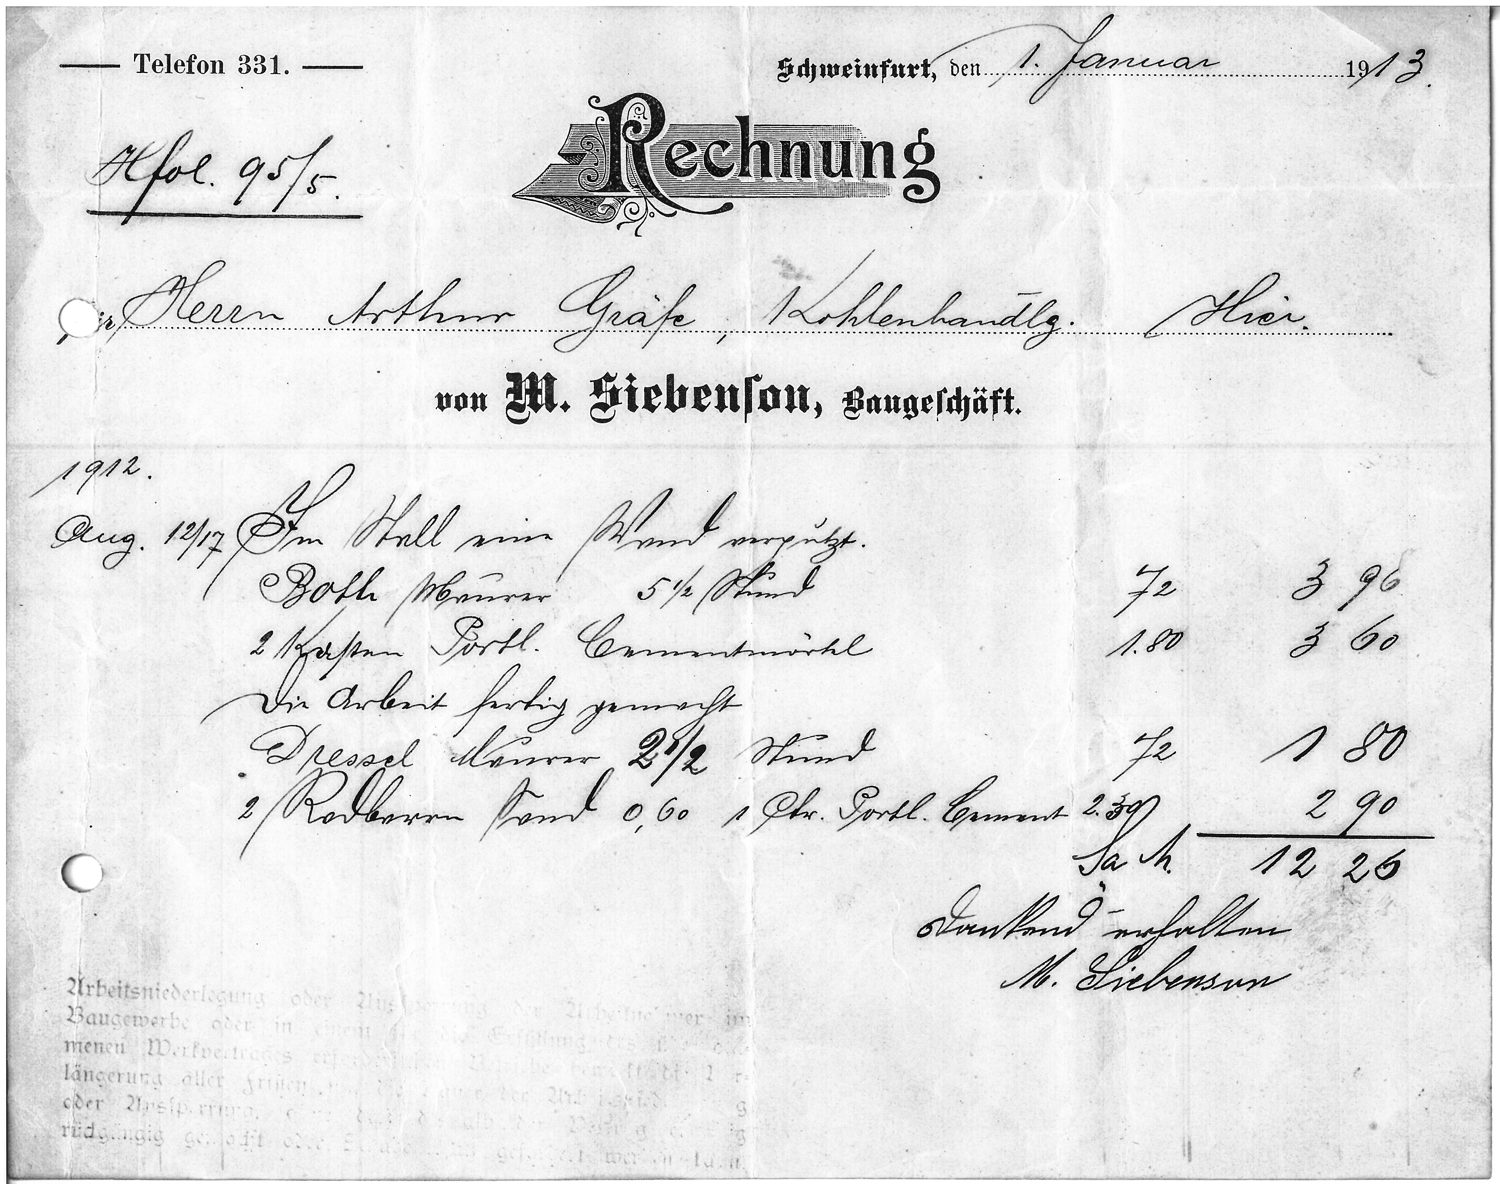 Telefon 331.
Schweinfurt, den 1. Januar 1913.
Hfol. 95/5.
Rechnung
für Herrn Arthur Gräfe, Kohlenhandlg. Hier.
von M. Siebenson, Baugeschäft.
1912.
Aug. 12/17 Im Stall eine Wand verputzt.
Both Maurer 5 1/2 Stund 72 3 96
2 Kasten Portl. Cementmörtel 1.80 3 60
Die Arbeit fertig gemacht
Dressel Maurer 2 1/2 Stund 72 1 80
2 Radberrn Sand 0,60 1 Ctr. Portl. Cement 2.30 2 90
Sa M. 12 26
Dankend erhalten
M. Siebenson
Arbeitsniederlegung oder Arbeitnehmer im
Baugewerbe oder in einem Erfüllung
menen Werkvertrages erforderlichen
längerung aller Fristen
oder Aussperrung,
rückgängig gemacht oder